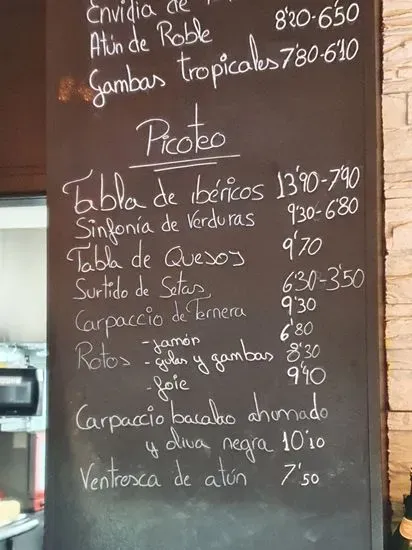 Envidia de
8'20-6'50
Atún de Roble
Gambas tropicales 7'80-6'10
Picoteo
Tabla de ibéricos 13'90-7'90
Sinfonía de Verduras 9'30-6'80
Tabla de Quesos 9'70
Surtido de Setas 6'30-3'50
Carpaccio de Ternera 9'30
Rotos -jamón 6'80
-gulas y gambas 8'30
-foie 9'40
Carpaccio bacalao ahumado
y oliva negra 10'10
Ventresca de atún 7'50